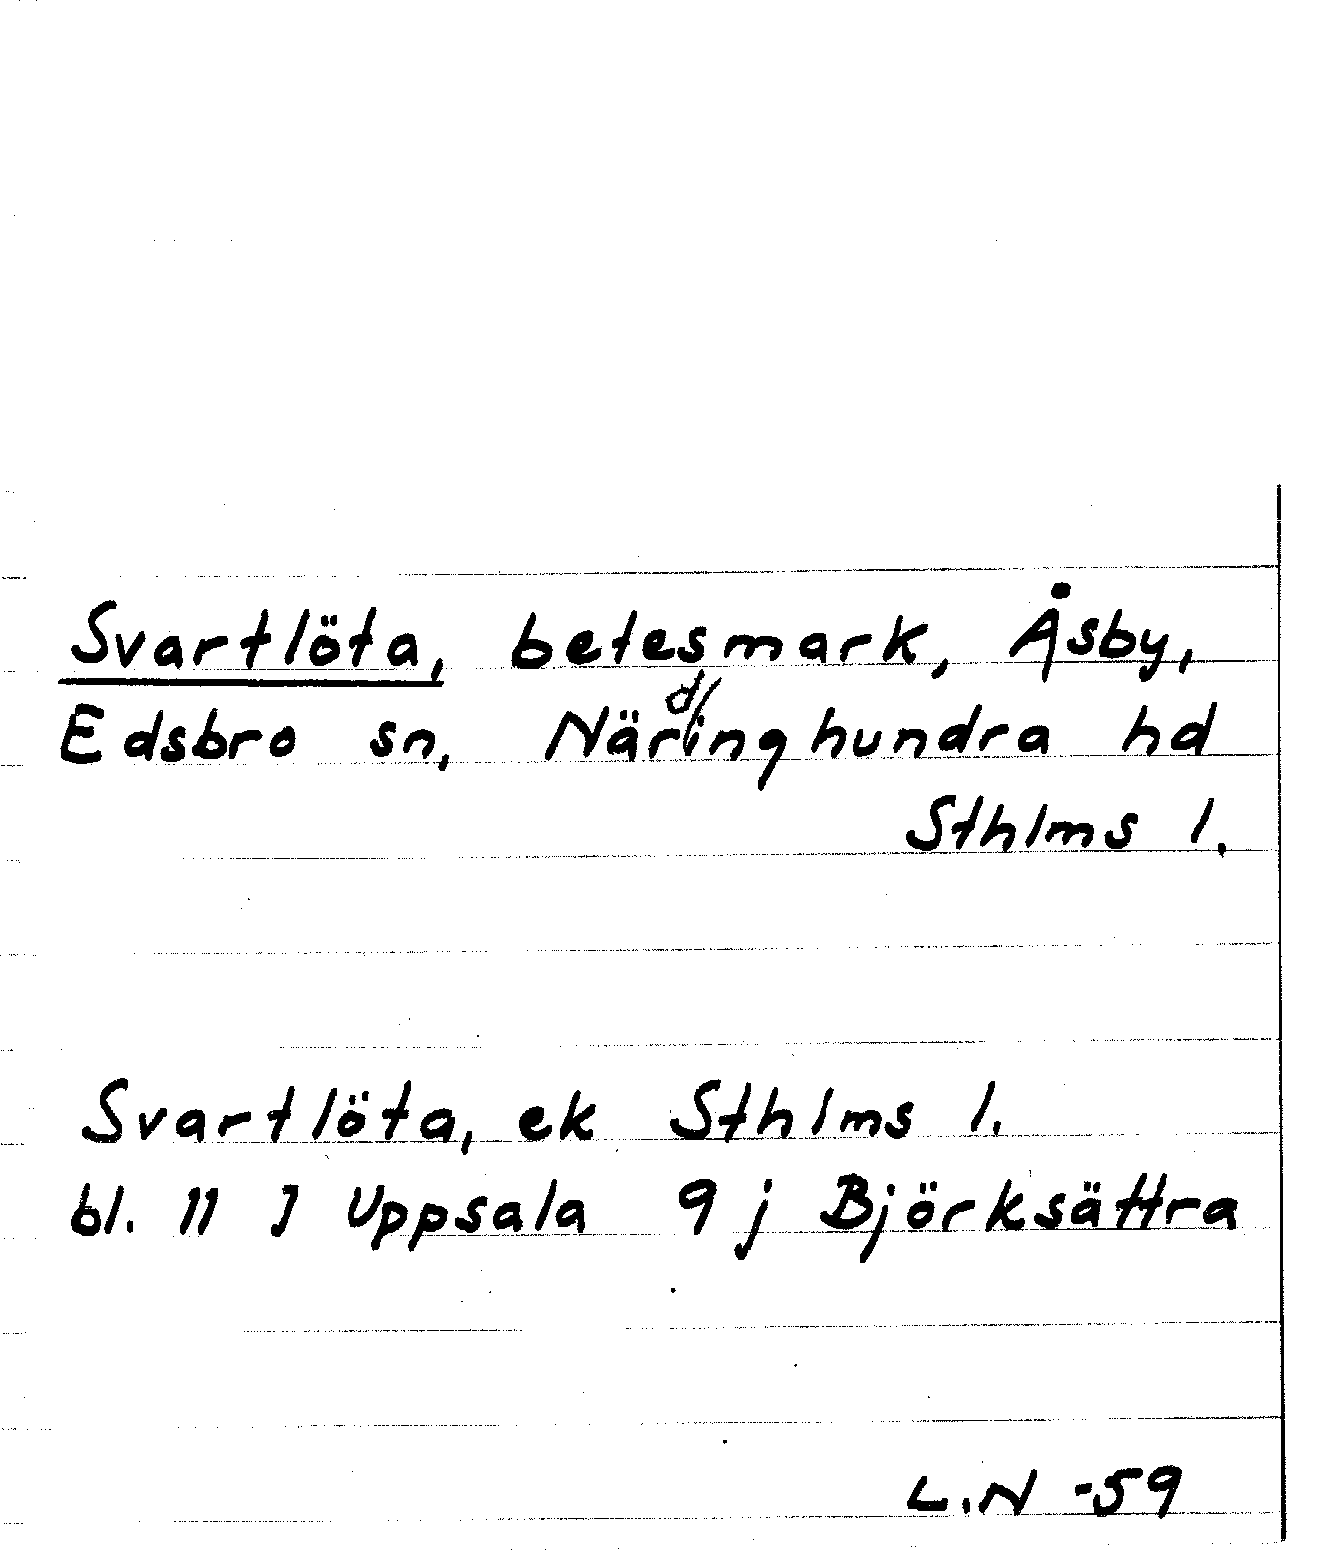 Svartlöta, betesmark, Åsby,
Edsbro sn, Närdinghundra hd
Sthlms l.
Svartlöta, ek Sthlms l.
bl. 11 J Uppsala 9 j Björksättra
L.N -59